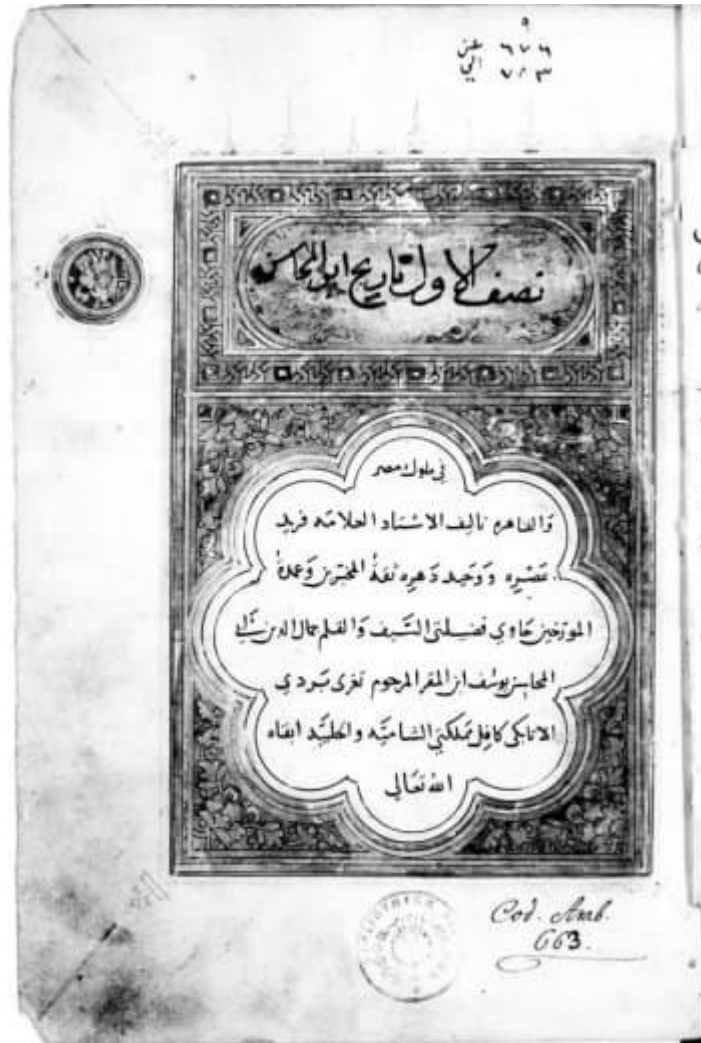 ٩
٦٧٦ عن
٧١٣ الي
نصف الاول تاريخ ابو المحاسن
في ملوك مصر
والقاهره تاليف الاستاد العلامه فريد
عصره ووحيد دهره ثقة المخبرين وعمدة
المورخين حاوي فضيلتي السيف والقلم جمال الدين ابي
المحاسن يوسف ابن المقر المرحوم تغرى بردي
الاتابكي كافل مملكتي الشاميه والحلبيه ابقاه
الله تعالي
Cod. Arab.
663.